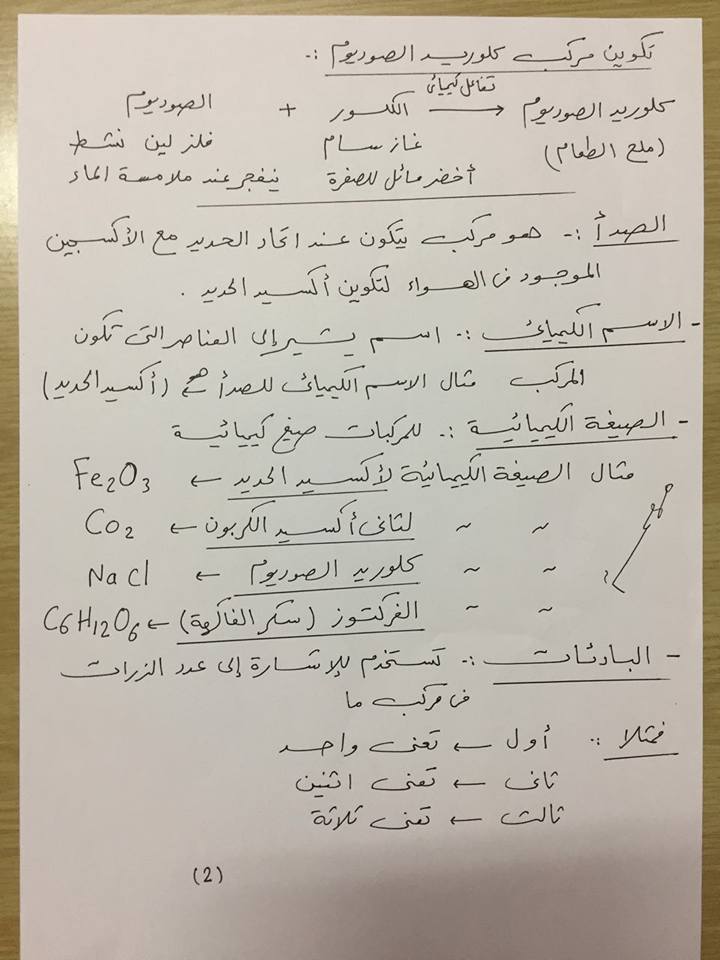 تكوين مركب كلوريد الصوديوم :-
الصوديوم + الكلور ⟶ كلوريد الصوديوم
تفاعل كيميائى
فلز لين نشط غاز سام (ملح الطعام)
ينفجر عند ملامسة الماء أخضر مائل للصفرة
الصدأ :- هو مركب يتكون عند اتحاد الحديد مع الأكسجين
الموجود فى الهواء لتكوين أكسيد الحديد .
- الاسم الكيميائى :- اسم يشير إلى العناصر التى تكون
المركب مثال الاسم الكيميائى للصدأ هو ← (أكسيد الحديد)
- الصيغة الكيميائية :- للمركبات صيغ كيميائية
مثال الصيغة الكيميائية لأكسيد الحديد ← Fe2O3
~ ~ لثانى أكسيد الكربون ← Co2
~ ~ كلوريد الصوديوم ← NaCl
~ ~ الفركتوز (سكر الفاكهة) ← C6H12O6
- البادئات :- تستخدم للإشارة إلى عدد الزرات
فى مركب ما
فمثلا :- أول ← تعنى واحد
ثانى ← تعنى اثنين
ثالث ← تعنى ثلاثة
(2)